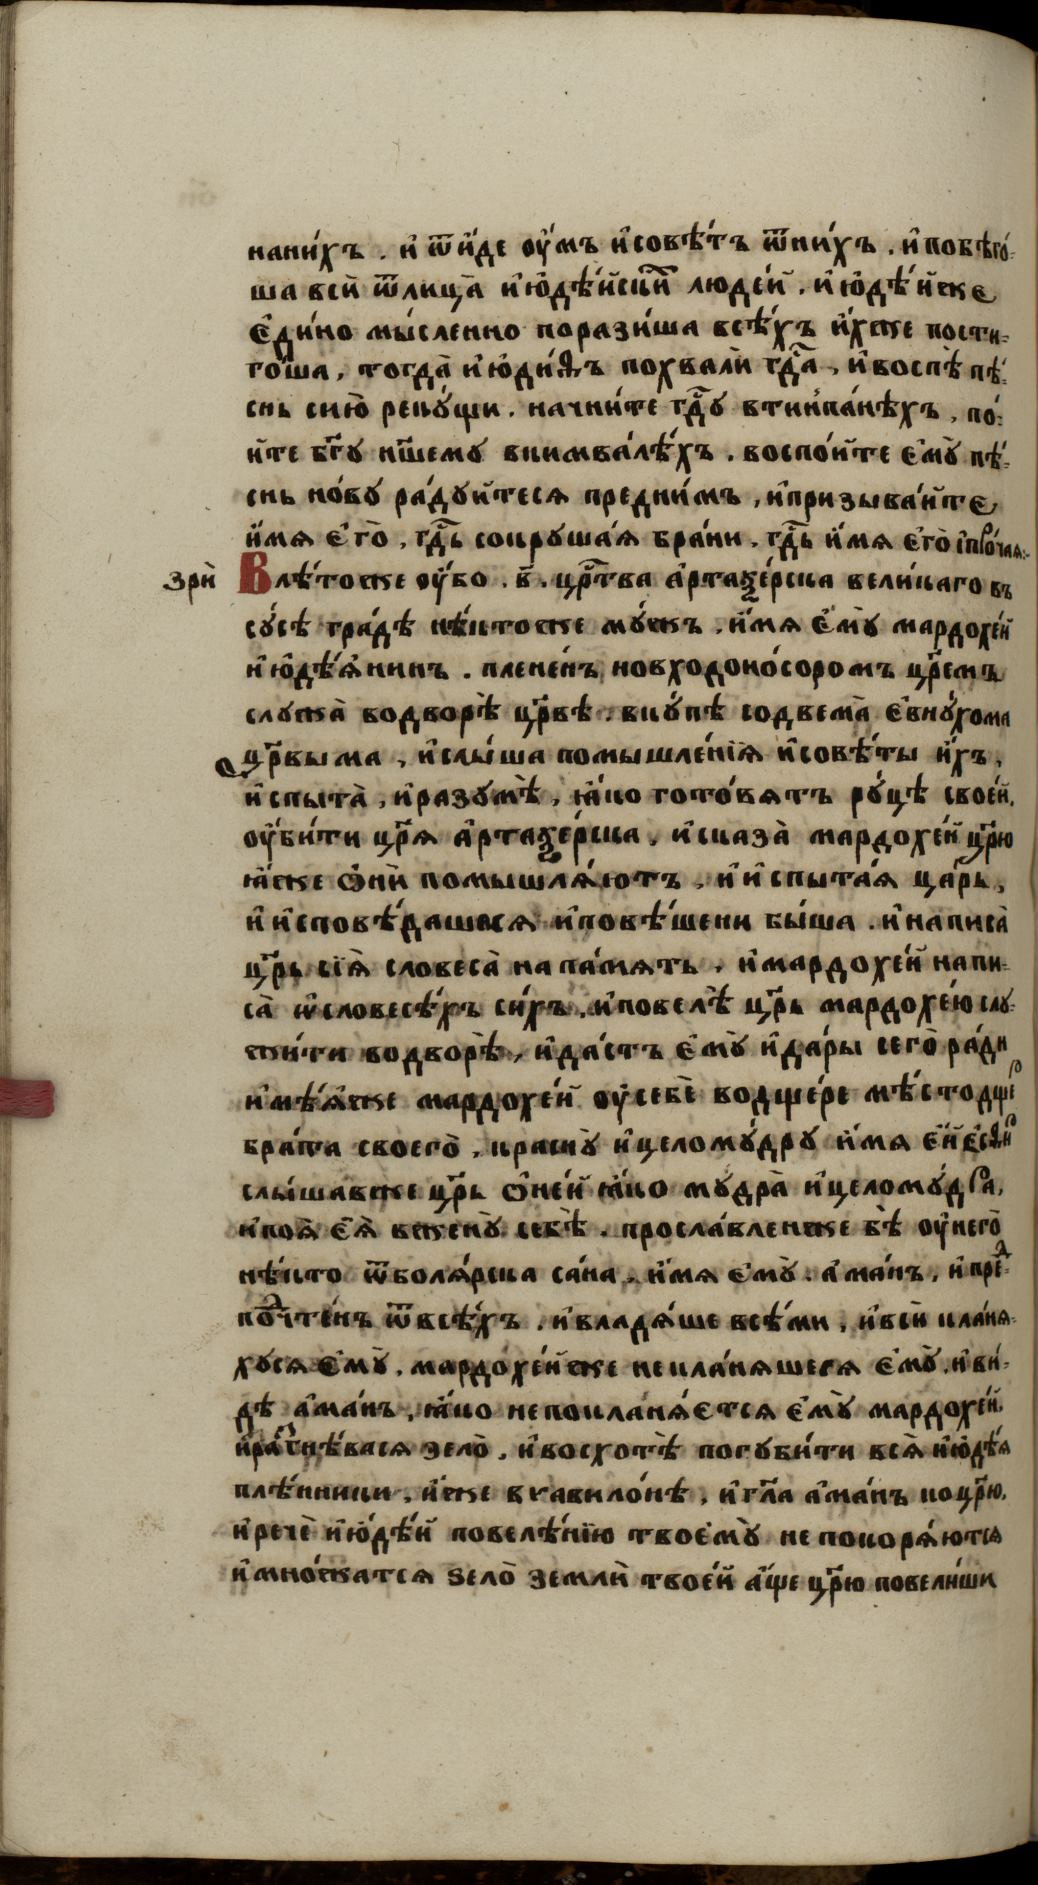 нани́хъ . и҆ ѿи́де оу҆́мъ и҆совѣ́тъ ѿни́хъ . и҆ побѣго́-
ша всѝ ѿлица̀ и҆ю҆дѣ́йскїй люде́й . и҆ю҆дѣ́йже
є҆ди́но мы́сленно порази́ша всѣ́хъ и҆́хже пости-
го́ша , тогда̀ и҆ю҆ди́ѳъ похвалѝ гд҇а , и҆воспѣ̀ пѣ́-
снь сию̀ реку́щи . начни́те гд҇у втимпа́нѣхъ , по́-
йте бг҃у на́шему вкимва́лѣхъ . воспо́йте є҆мꙋ̀ пѣ́-
снь но́ву ра́дуйтеся предни́мъ , и҆призыва́йте
и҆́мя є҆гѡ̀ , гд҇ь сокруша́я бра́ни . гд҇ь и҆́мя є҆го̀ и҆про́чая :·
зрѝ Влѣ́тоже оу҆́бо . в҃ . цр҇тва а҆ртаѯе́ркса вели́каго въ
су́сѣ гра́дѣ нѣ́ктоже му́жъ . и҆́мя є҆мꙋ̀ мардохе́й
и҆ю҆дѣ́янинъ . плене́нъ новходоно́соромъ цр҃емъ
служа̀ водворѣ̀ цр҃вѣ . вку́пѣ содвема̀ є҆вну́хома
цр҃выма , и҆слы́ша помышле́нїя и҆совѣ́ты и҆́хъ ,
и҆спыта̀ , и҆разумѣ̀ , ꙗ҆́ко гото́вятъ ру́цѣ свое́й .
оу҆би́ти цр҃я а҆ртаѯе́ркса . и҆сказа̀ мардохе́й цр҃ю
ꙗ҆́же ѻ҆нѝ помышля́ютъ , и҆ и҆спыта́я ца́рь ,
и҆ и҆сповѣ́дашася и҆повѣ́шени бы́ша . и҆написа̀
цр҃ь сїя̀ словеса̀ напа́мять . и҆мардохе́й напи-
са̀ ѡ҆словесѣ́хъ си́хъ , и҆повелѣ̀ цр҃ь мардохе́ю слу-
жи́ти водворѣ̀ , и҆да́стъ є҆мꙋ̀ и҆да́ры сего̀ ра́ди
и҆мѣ́яже мардохе́й оу҆себѐ водще́ре мѣ́сто дще́р
бра́та своего̀ , красну̀ и҆целому́дру и҆́мя є҆́й є҆сѳи́р
слы́шавже цр҃ь ѻ҆не́й ꙗ҆́ко му́дра̀ и҆целому́дра ,
и҆поя̀ є҆я̀ вжену̀ себѣ̀ . просла́вленже бѣ̀ оу҆него̀
нѣ́кто ѿболя́рска са́на . и҆́мя є҆мꙋ̀ . а҆ма́нъ , и҆ пред-
почте́нъ ѿвсѣ́хъ . и҆владя́ше всѣ́ми , и҆всѝ кла́ня-
хуся є҆мꙋ̀ . мардохе́йже некла́няшеся є҆мꙋ̀ . и҆ви́-
дѣ а҆ма́нъ , ꙗ҆́ко непокланя́єтся є҆мꙋ̀ мардохе́й .
и҆разгнѣ́вася зело̀ , и҆восхотѣ̀ погуби́ти вся̀ и҆ю҆дѣ́я
плѣ́нники , и҆́же вгавило́нѣ , и҆гл҃а а҆ма́нъ ко цр҃ю ,
и҆речѐ и҆ю҆дѣ́й повелѣ́нїю твоемꙋ̀ не покоря́ются
и҆мно́жатся ѕело̀ землѝ твое́й а҆́ще цр҃ю повели́ши